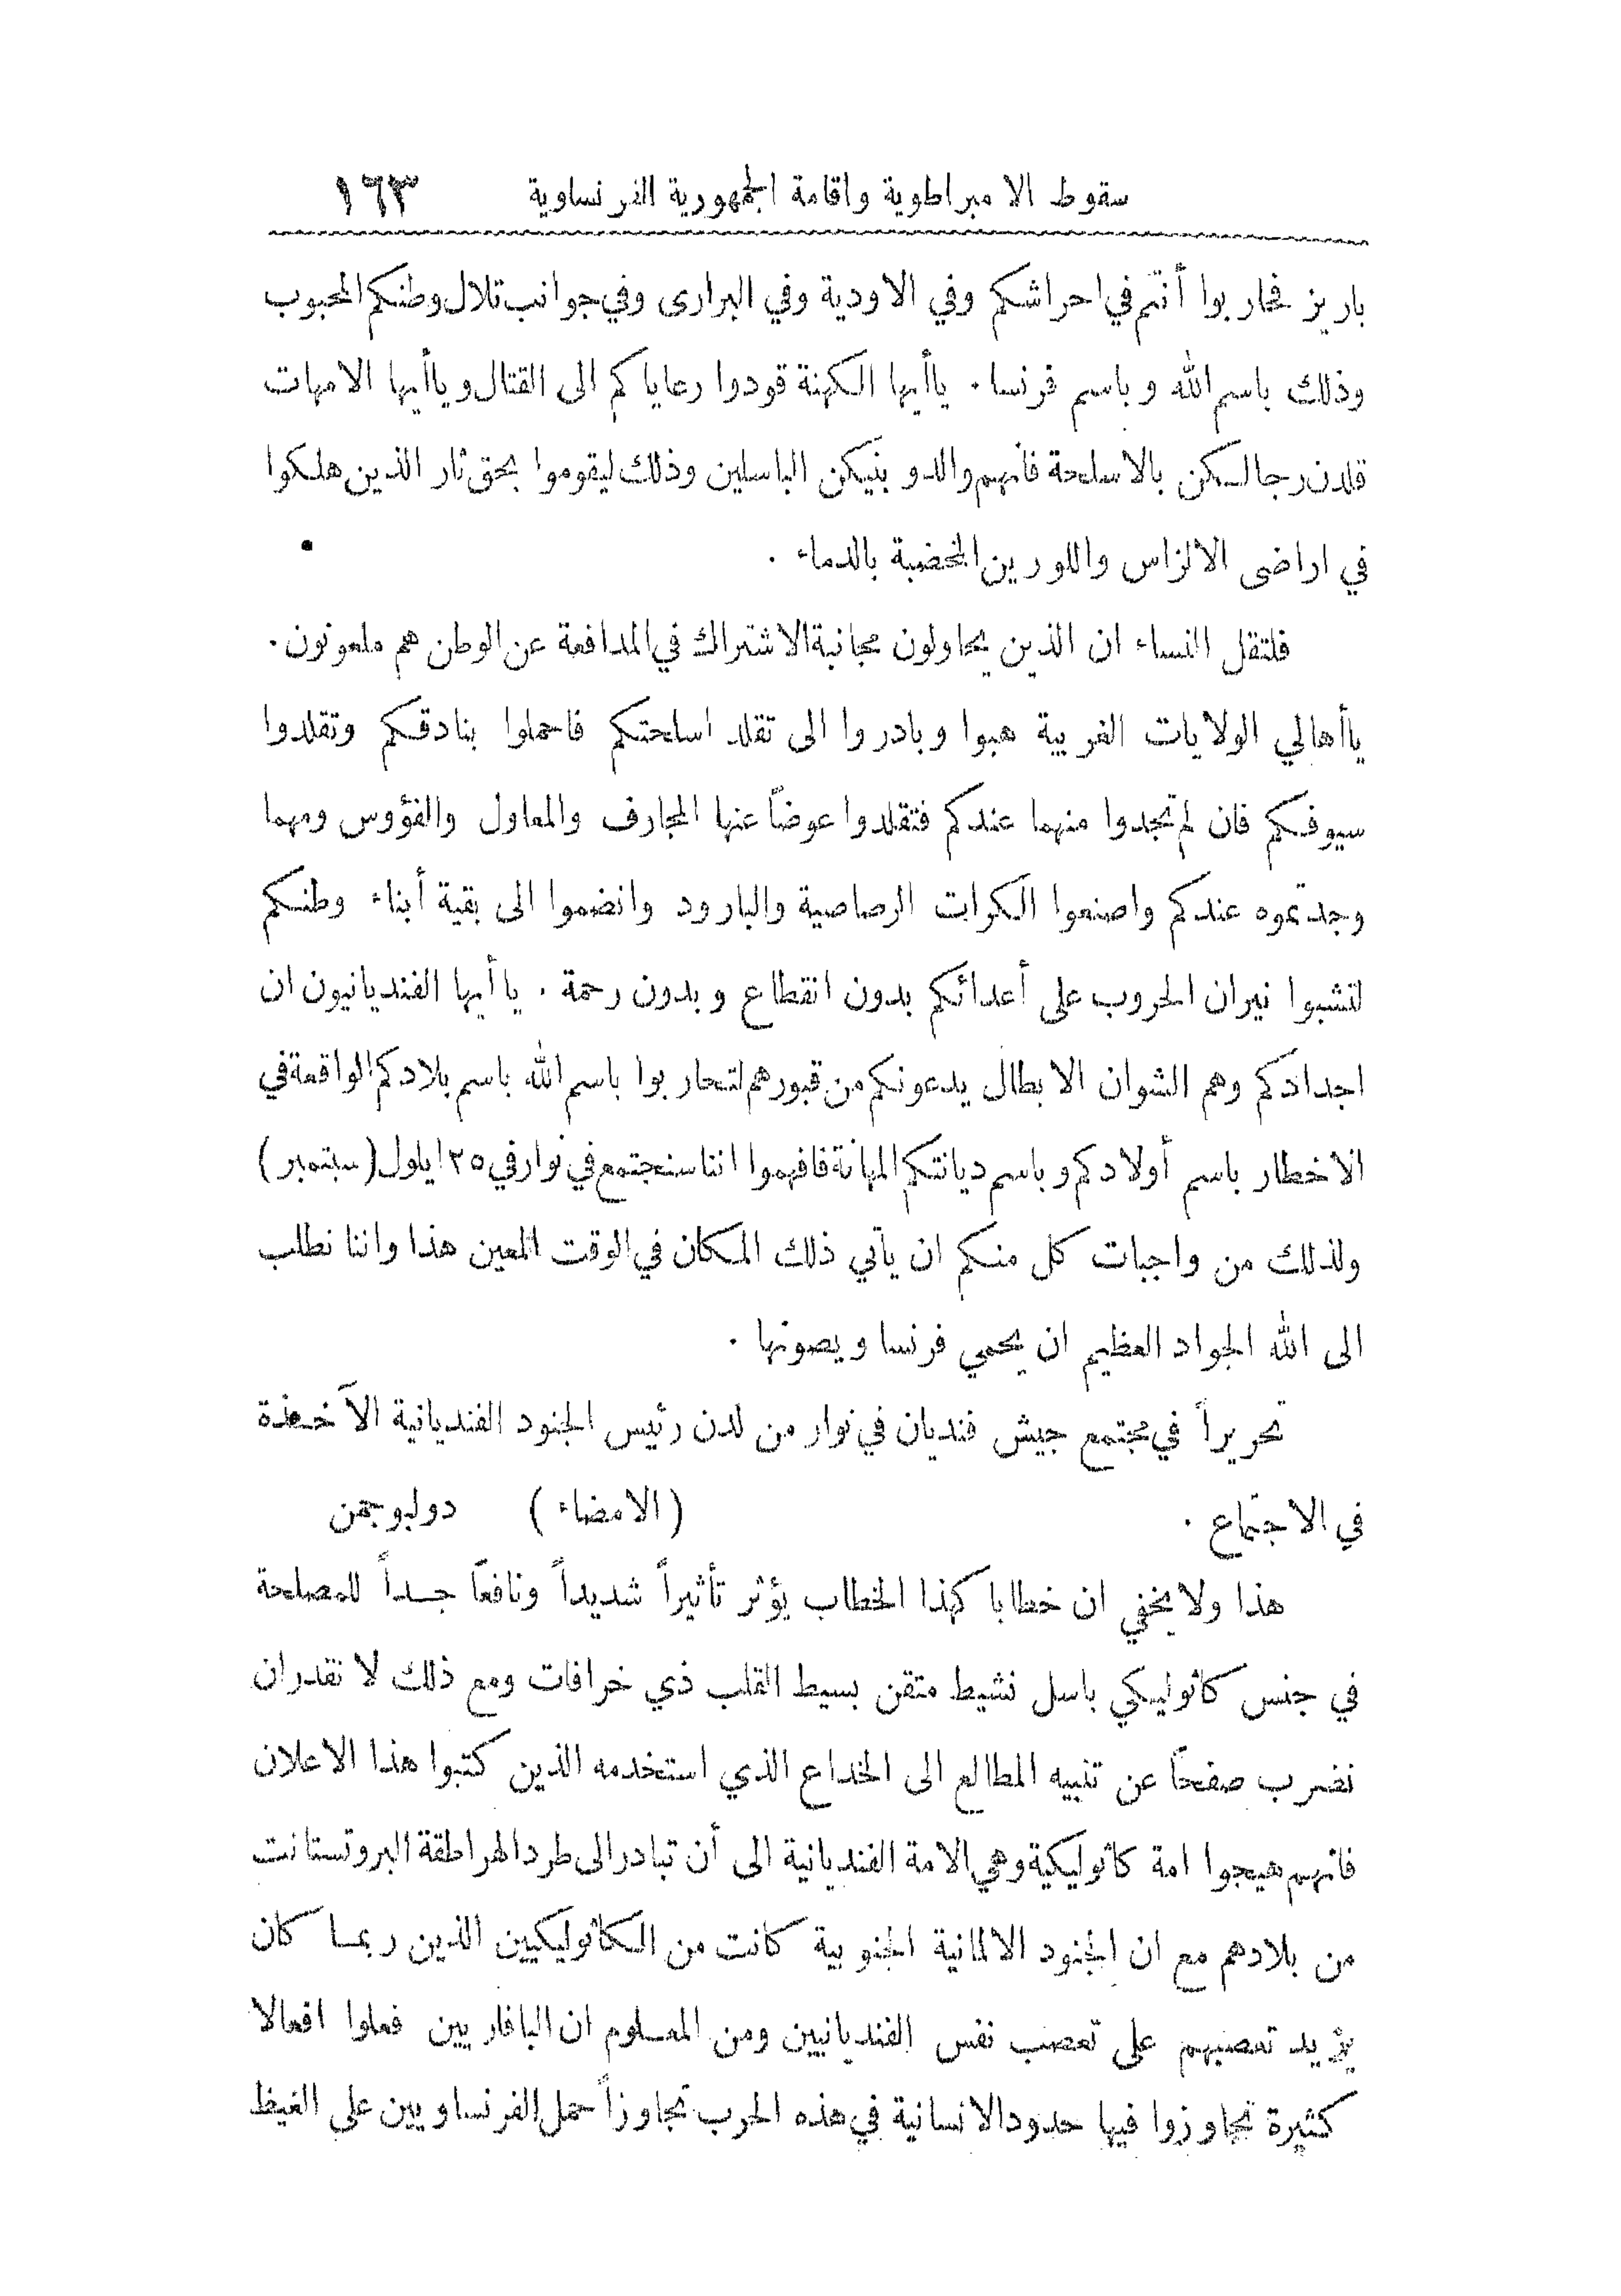 سقوط الامبراطوية واقامة الجمهورية الفرنساوية ١٦٣
باريز فحاربوا أنتم في احراشكم وفي الاودية وفي البرارى وفي جوانب تلال وطنكم المحبوب
وذلك باسم الله وباسم فرنسا . ياأيها الكهنة قودوا رعاياكم الى القتال وياأيها الامهات
قلدن رجالكن بالاسلحة فانهم والدو بنيكن الباسلين وذلك ليقوموا بحق ثار الذين هلكوا
في اراضى الالزاس واللورين المخضبة بالدماء .
فلتقل النساء ان الذين يحاولون مجانبة الاشتراك في المدافعة عن الوطن هم ملعونون .
ياأهالي الولايات الغربية هبوا وبادروا الى تقلد اسلحتكم فاحملوا بنادقكم وتقلدوا
سيوفكم فان لم تجدوا منهما عندكم فتقلدوا عوضاً عنها المجارف والمعاول والفؤوس ومهما
وجدتموه عندكم واصنعوا الكرات الرصاصية والبارود وانضموا الى بقية أبناء وطنكم
لتشبوا نيران الحروب على أعدائكم بدون انقطاع وبدون رحمة . ياأيها الفنديانيون ان
اجدادكم وهم الشوان الابطال يدعونكم من قبورهم لتحاربوا باسم الله باسم بلادكم الواقعة في
الاخطار باسم أولادكم وباسم ديانتكم المهانة فافهموا اننا سنجتمع في نوار في ٢٥ ايلول (سبتمبر)
ولذلك من واجبات كل منكم ان يأتي ذلك المكان في الوقت المعين هذا واننا نطلب
الى الله الجواد العظيم ان يحمي فرنسا ويصونها .
تحريراً في مجتمع جيش فنديان في نوار من لدن رئيس الجنود الفنديانية الآخذة
في الاجتماع . (الامضاء) دولبوجمن
هذا ولا يخفي ان خطابا كهذا الخطاب يؤثر تأثيراً شديداً ونافعاً جداً للمصلحة
في جنس كاثوليكي باسل نشيط متقن بسيط القلب ذي خرافات ومع ذلك لا نقدر ان
نضرب صفحاً عن تنبيه المطالع الى الخداع الذي استخدمه الذين كتبوا هذا الاعلان
فانهم هيجوا امة كاثوليكية وهي الامة الفنديانية الى أن تبادر الى طرد الهراطقة البروتستانت
من بلادهم مع ان الجنود الالمانية الجنوبية كانت من الكاثوليكيين الذين ربما كان
يزيد تعصبهم على تعصب نفس الفنديانيين ومن المعلوم ان البافاريين فعلوا افعالا
كثيرة تجاوزوا فيها حدود الانسانية في هذه الحرب تجاوزاً حمل الفرنساويين على الغيظ